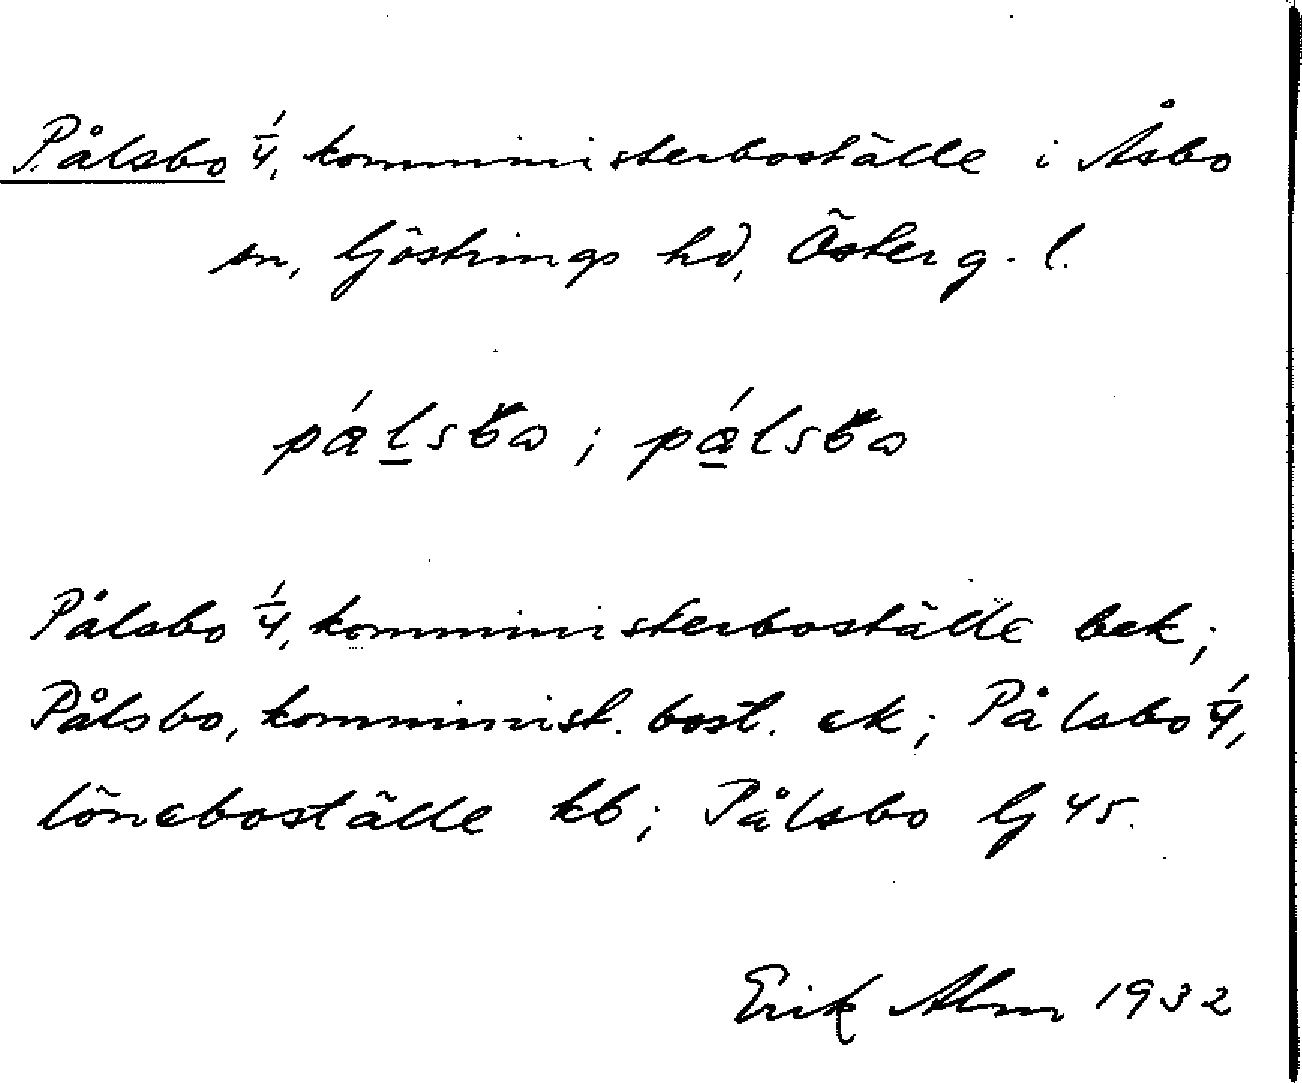 Pålsbo 1/4, kommministerboställe i Åsbo
sn, Göstrings hd, Österg. l.
pá̱lsbo; pá̱lsbo
Pålsbo 1/4, komministerboställe bek;
Pålsbo, komminist. bost. ek; Pålsbo 1/4,
löneboställe kb; Pålsbo Gj 45.
Erik Alm 1932